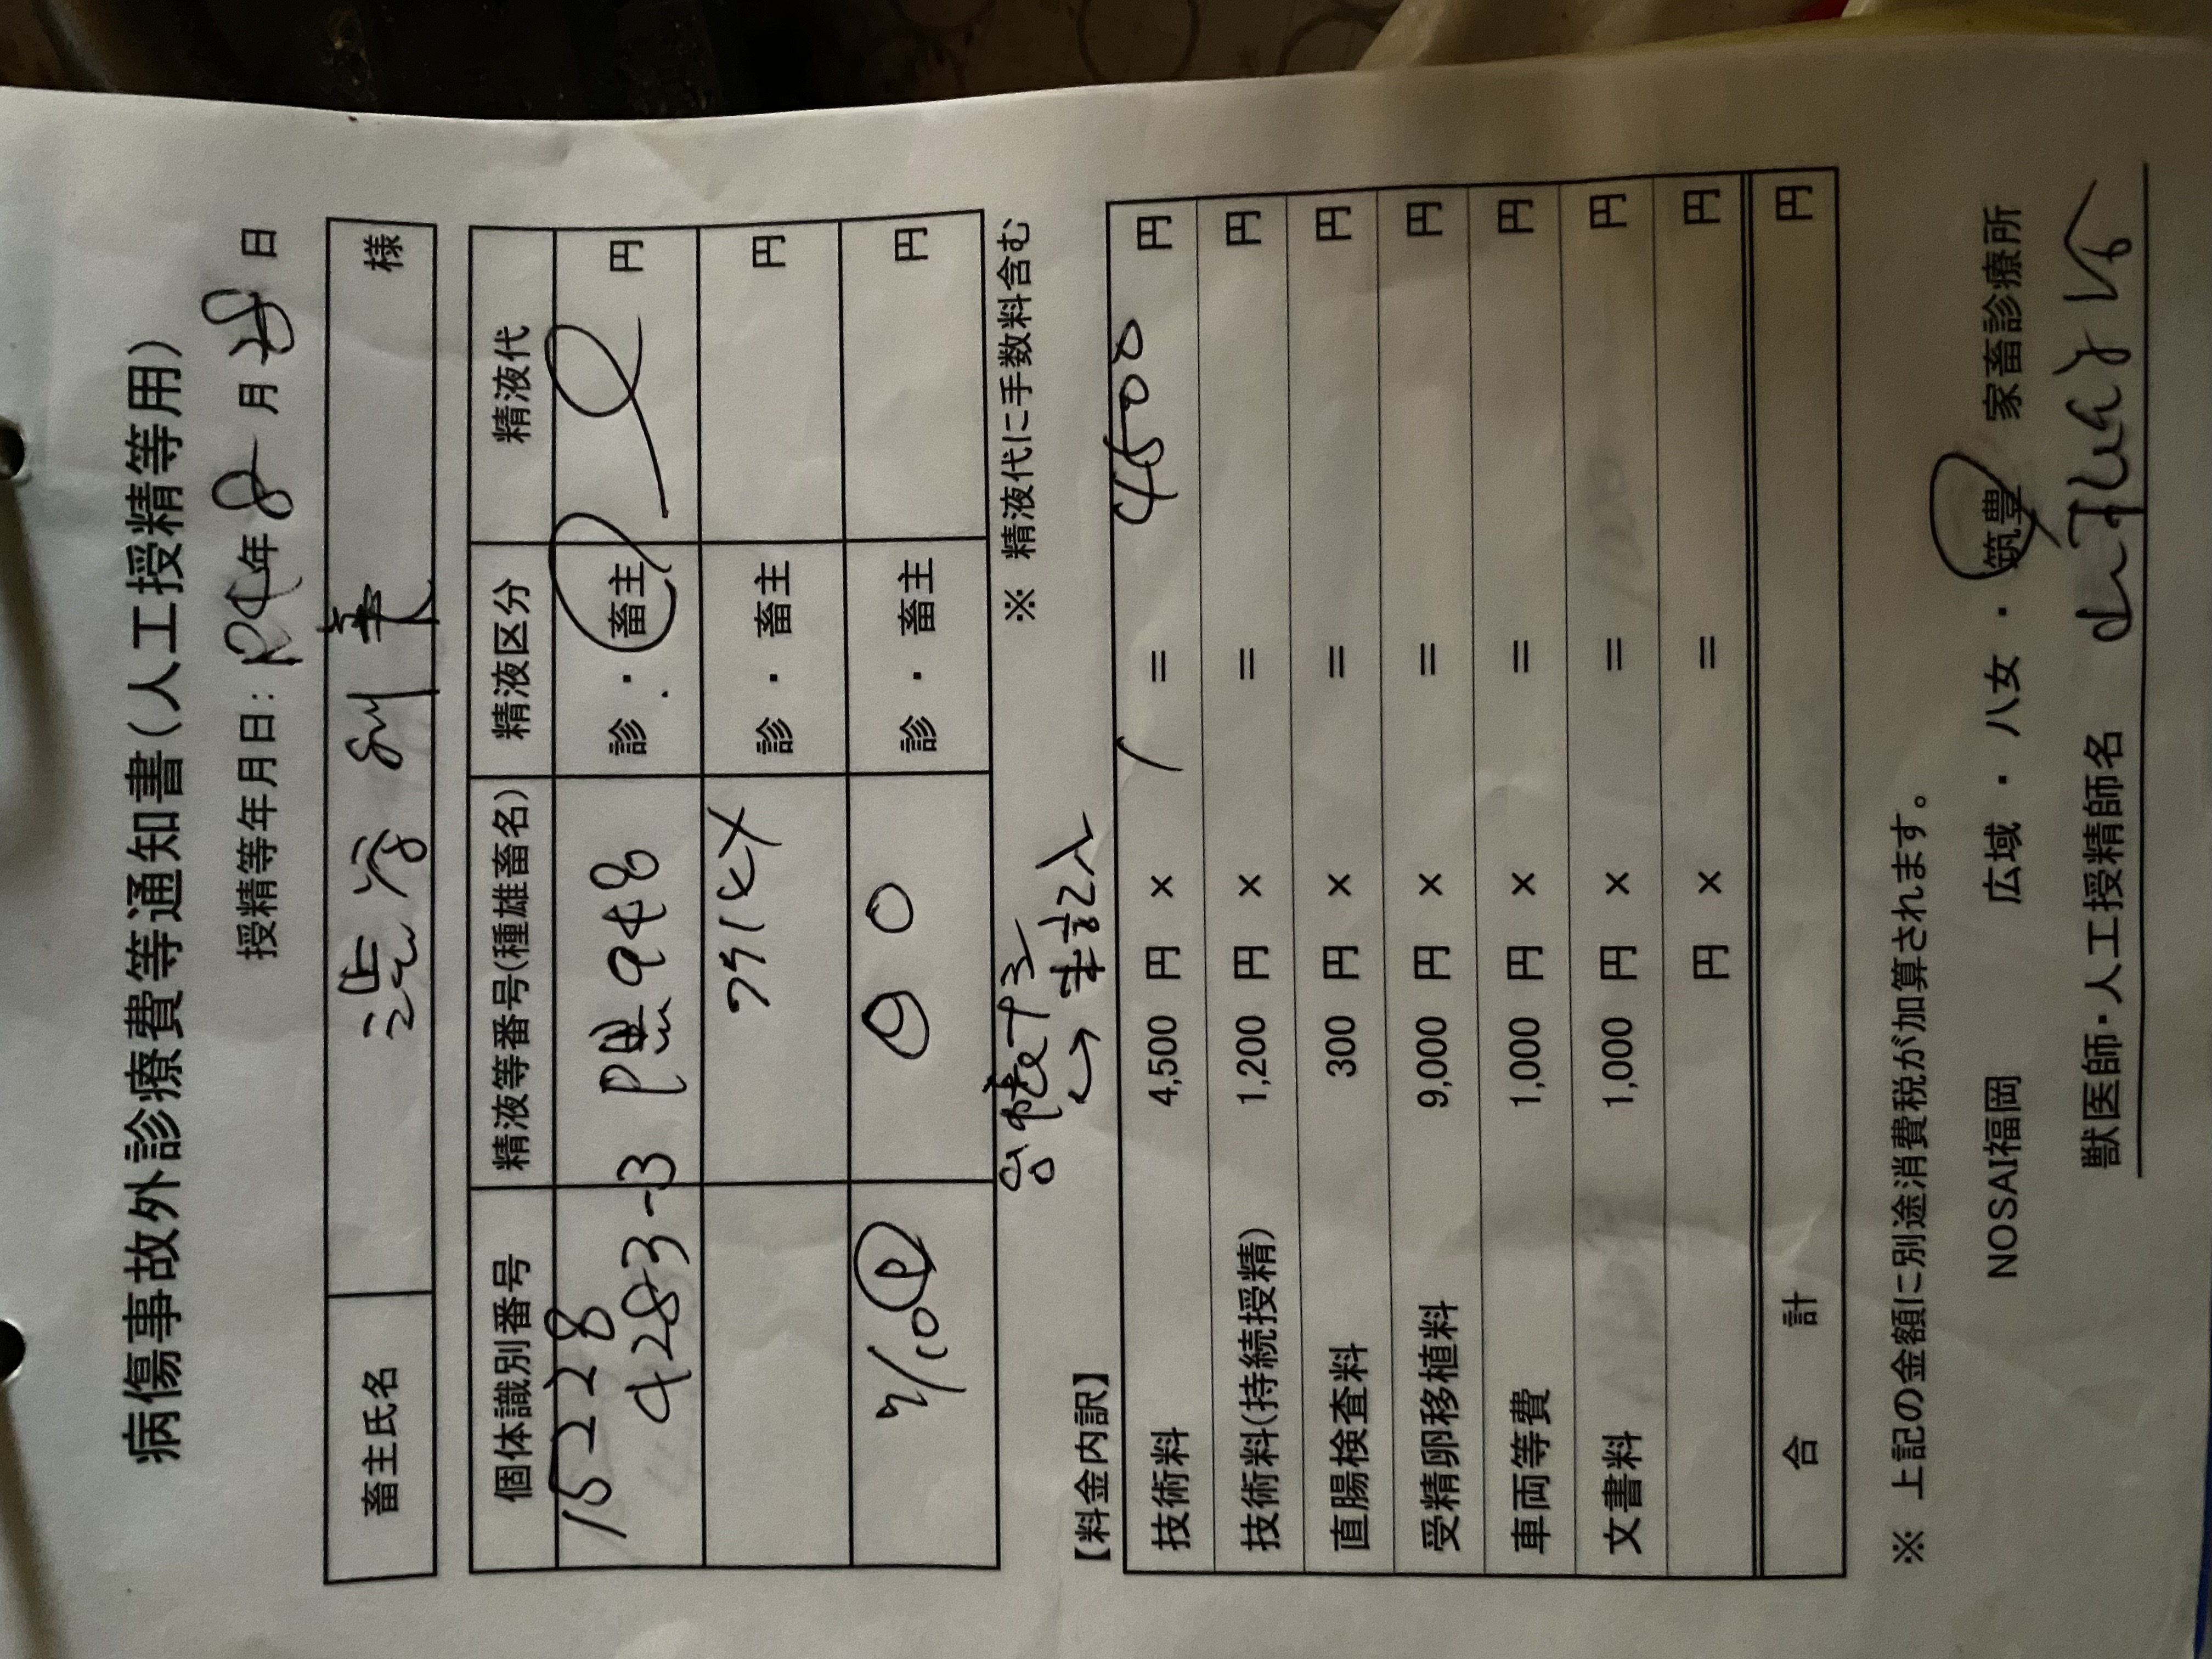 病傷事故外診療費等通知書(人工授精等用)
授精等年月日: R4年 8 月 28 日
畜主氏名 渋谷 様
個体識別番号 精液等番号(種雄畜名) 精液区分 精液代
15228
4283-3 948 診 ・ 畜主 円
診 ・ 畜主 円
診 ・ 畜主 円
※ 精液代に手数料含む
未記入
【料金内訳】
技術料 4,500 円 × 1 = 4500 円
技術料(持続授精) 1,200 円 × = 円
直腸検査料 300 円 × = 円
受精卵移植料 9,000 円 × = 円
車両等費 1,000 円 × = 円
文書料 1,000 円 × = 円
円 × = 円
合 計 円
※ 上記の金額に別途消費税が加算されます。
NOSAI福岡 広域 ・ 八女 ・ 筑豊 家畜診療所
獣医師・人工授精師名